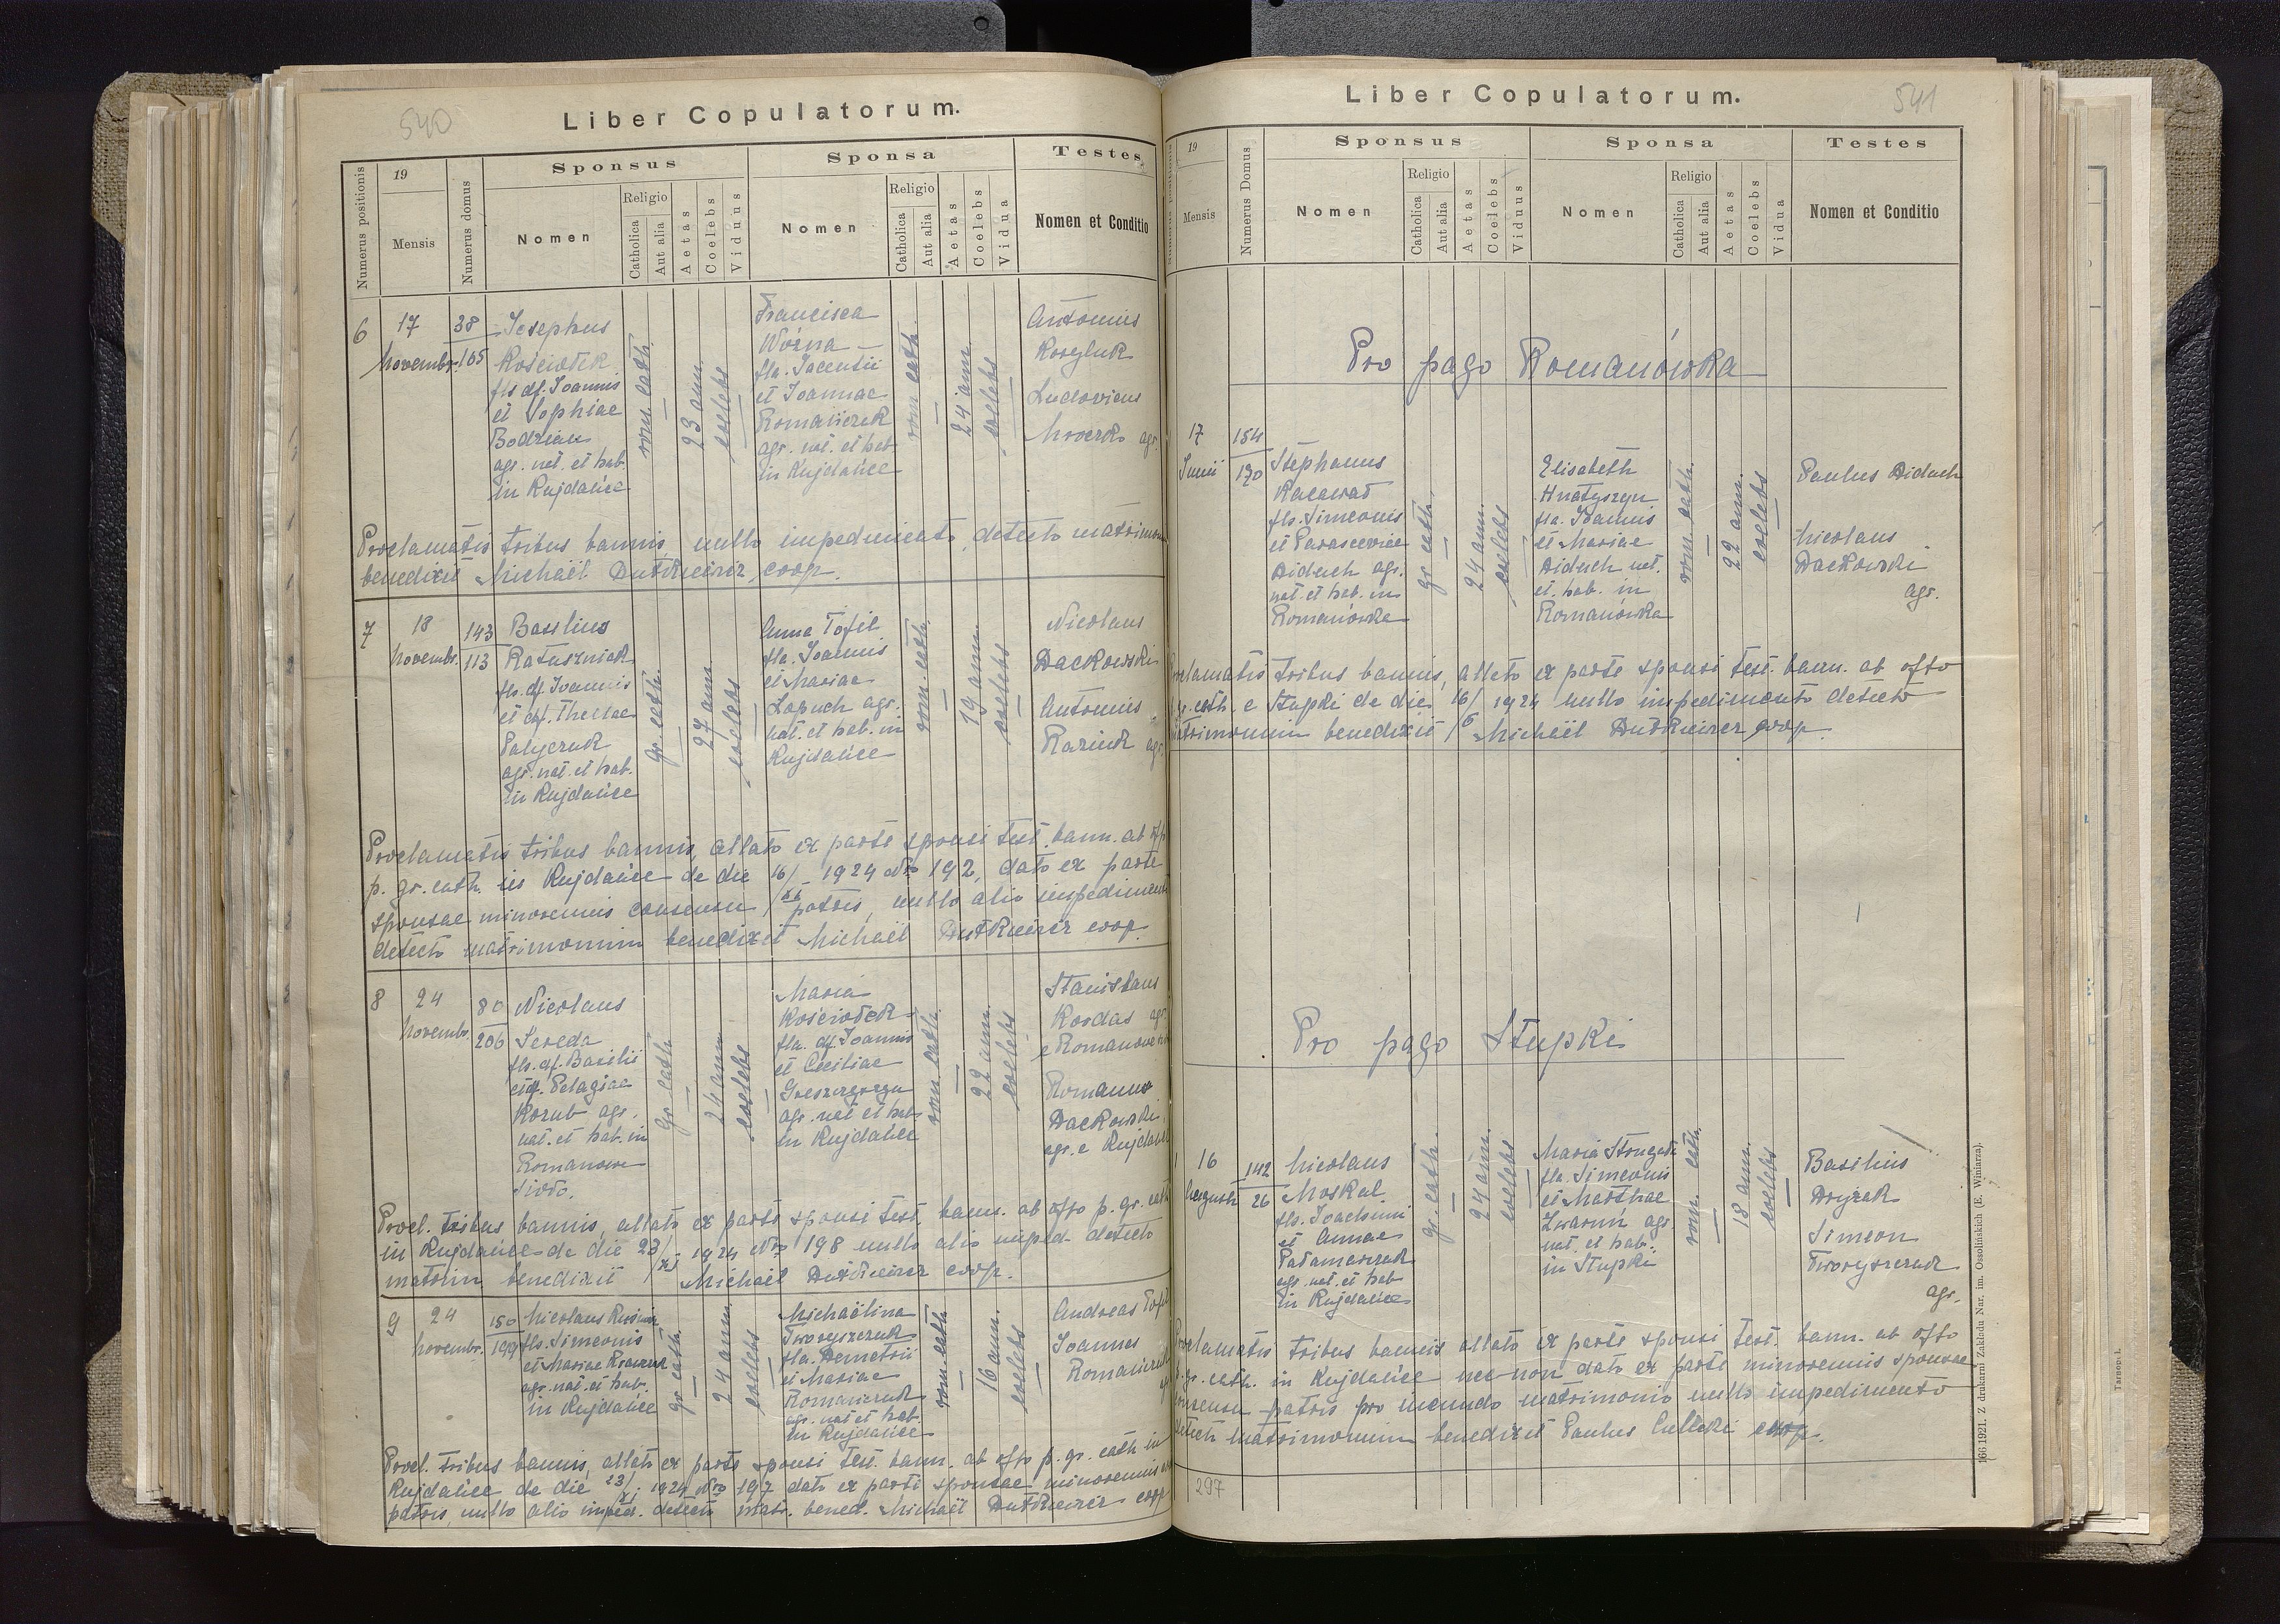 540
Liber Copulatorum.
Numerus positionis
19
Mensis
Numerus domus
Sponsus
Nomen
Religio
Catholica
Aut alia
Aetas
Coelebs
Viduus
Sponsa
Nomen
Religio
Catholica
Aut alia
Aetas
Coelebs
Vidua
Testes
Nomen et Conditio
6
17
Novembr.
38
165
Josephus
Kościołek
fls df. Joannis
et Sophiae
Bodzian
agr. nat. et hab.
in Kujdańce
rom. cath.
23 ann.
coelebs
Francisca
Woźna
fla. Jacentii
et Joannae
Romańczuk
agr. nat. et hab.
in Kujdańce
rom cath.
24 ann.
coelebs
Antonius
Ludovicus
agr.
Proclamatis tribus bannis, nullo impedimento, detecto matrimon
benedixit Michaël Dutkiewicz coop.
7
18
Novembr.
143
113
Basilius
Ratuszniak
fls. df. Joannis
et df. Theclae
agr. nat. et hab.
in Kujdańce
gr. cath.
27 ann
coelebs
Anna Tofil
fla. Joannis
et Mariae
Łopuch agr.
nat. et hab. in
Kujdańce
rom. cath.
19 ann.
coelebs
Nicolaus
Dackowski
Antonius
Kaziuk agr.
Proclamatis tribus bannis, allato ex parte sponsi test. bann. ab offo
p. gr. cath. in Kujdańce de die 16/XI 1924 Nro 192, dato ex parte
sponsae minorennis consensu patris, nullo alio impedimento
detecto matrimonium benedixit Michaël Dutkiewicz coop.
8
24
Novembr.
80
206
Nicolaus
Sereda
fls. df. Basilii
et df. Pelagiae
Kozub agr.
nat. et hab. in
Romanowe
Sioło.
gr cath
24 ann
coelebs
Maria
Kościołek
fla. df. Joannis
et Ceciliae
agr. nat et hab
in Kujdańce
rom. cath.
22 ann.
coelebs
Stanislaus
Kordas agr.
Romanus
Dackowski
agr. e Kujdańce
Procl. tribus bannis, allato ex parte sponsi test. bann. ab offo p. gr. cath
in Kujdańce de die 23/XI 1924 Nro 198 nullo alio imped. detecto
matrim benedixit Michaël Dutkiewicz coop.
9
24
Novembr.
150
199
Nicolaus
fls. Simeonis
et Mariae
agr. nat. et hab.
in Kujdańce
gr cath.
24 ann.
coelebs
Michaëlina
Tworyszczuk
fla. Demetrii
et Mariae
Romańczuk
agr. nat et hab.
in Kujdańce
rom. cath
16 ann.
coelebs
Andreas Tofil
Joannes
Romańczuk
Procl. tribus bannis, allato ex parte sponsi test. bann. ab offo p. gr. cath in
Kujdańce de die 23/XI 1924 Nro 197 dato ex parte sponsae minorennis
patris, nullo alio imped. detecto matr. bened. Michaël Dutkiewicz coop
541
Liber Copulatorum.
19
Mensis
Numerus Domus
Sponsus
Nomen
Religio
Catholica
Aut alia
Aetas
Coelebs
Viduus
Sponsa
Nomen
Religio
Catholica
Aut alia
Aetas
Coelebs
Vidua
Testes
Nomen et Conditio
Pro pago Romanówka
17
Junii
154
190
Stephanus
fls. Simeonis
et Parasceviae
Diduch agr.
nat. et hab. in
Romanówka
gr cath.
24 ann.
coelebs
Elisabeth
Hnatyszyn
fla. Joannis
et Mariae
Diduch nat.
et hab. in
Romanówka
rom. cath.
22 ann.
coelebs
Paulus Diduch
Nicolaus
Dackowski
agr.
Proclamatis tribus bannis, allato ex parte sponsi test. bann. ab offo
gr. cath. e Stupki de die 16/6 1924 nullo impedimento detecto
matrimonium benedixit Michaël Dutkiewicz coop.
Pro pago Stupki
1
16
Augusti
142
26
Nicolaus
Moskal
fls. Joachimi
et Annae
agr. nat. et hab
in Kujdańce
gr. cath.
24 ann.
coelebs
Maria
fla. Simeonis
et Marthae
agr
nat. et hab.
in Stupki
rom. cath.
18 ann.
coelebs
Basilius
Simeon
Tworyszczuk
agr.
Proclamatis tribus bannis allato ex parte sponsi test. bann. ab offo
p. gr. cath. in Kujdańce nec non dato ex parte minorennis sponsae
consensu patris pro ineundo matrimonio nullo impedimento
detecto matrimonium benedixit Paulus
297
166 1921. Z drukarni Zakładu Nar. im. Ossolińskich (E. Winiarza).